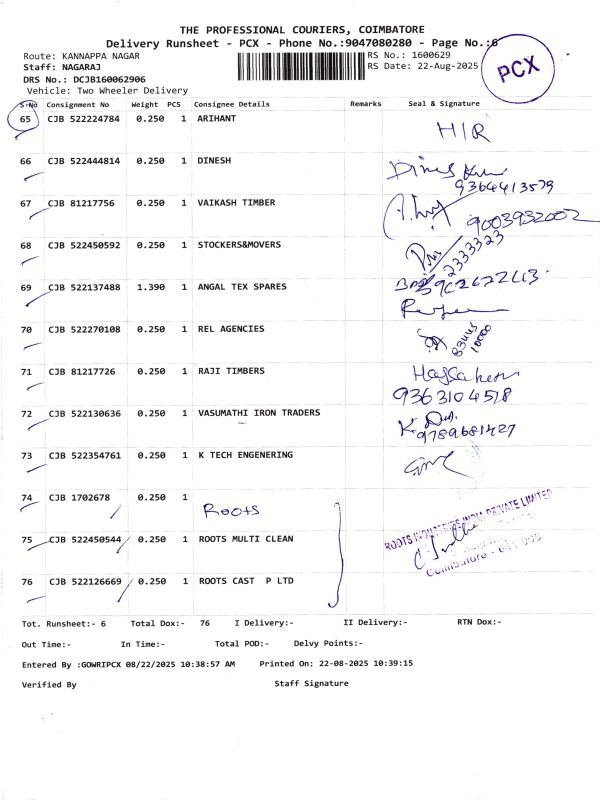 THE PROFESSIONAL COURIERS, COIMBATORE
Delivery Runsheet - PCX - Phone No.:9047080280 - Page No.:6
Route: KANNAPPA NAGAR RS No.: 1600629
Staff: NAGARAJ RS Date: 22-Aug-2025
DRS No.: DCJB160062906
Vehicle: Two Wheeler Delivery
PCX
SrNo Consignment No Weight PCS Consignee Details Remarks Seal & Signature
65 CJB 522224784 0.250 1 ARIHANT
H/R
66 CJB 522444814 0.250 1 DINESH
9364413579
67 CJB 81217756 0.250 1 VAIKASH TIMBER
9003932002
68 CJB 522450592 0.250 1 STOCKERS&MOVERS
2333323
69 CJB 522137488 1.390 1 ANGAL TEX SPARES
70 CJB 522270108 0.250 1 REL AGENCIES
10000
71 CJB 81217726 0.250 1 RAJI TIMBERS
9363104518
72 CJB 522130636 0.250 1 VASUMATHI IRON TRADERS
9789681427
73 CJB 522354761 0.250 1 K TECH ENGENERING
74 CJB 1702678 0.250 1
Roots
75 CJB 522450544 0.250 1 ROOTS MULTI CLEAN
ROOTS INDUSTRIES INDIA PRIVATE LIMITED
Coimbatore -
76 CJB 522126669 0.250 1 ROOTS CAST P LTD
Tot. Runsheet:- 6 Total Dox:- 76 I Delivery:- II Delivery:- RTN Dox:-
Out Time:- In Time:- Total POD:- Delvy Points:-
Entered By :GOWRIPCX 08/22/2025 10:38:57 AM Printed On: 22-08-2025 10:39:15
Verified By Staff Signature